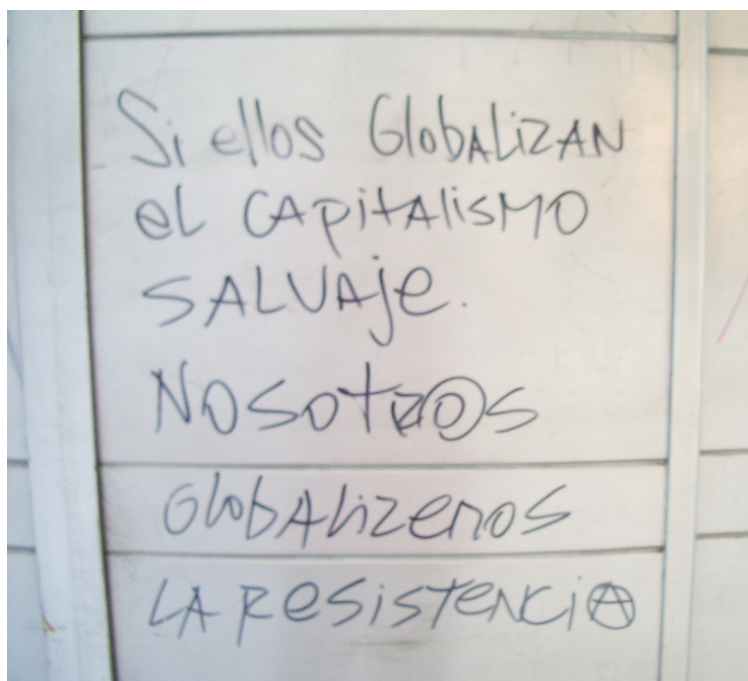 Si ellos GlobALiZAN
el CApitAlisMO
SALVAje.
NOSotr@s
GlobAlizemos
LA ResisTENCiⒶ